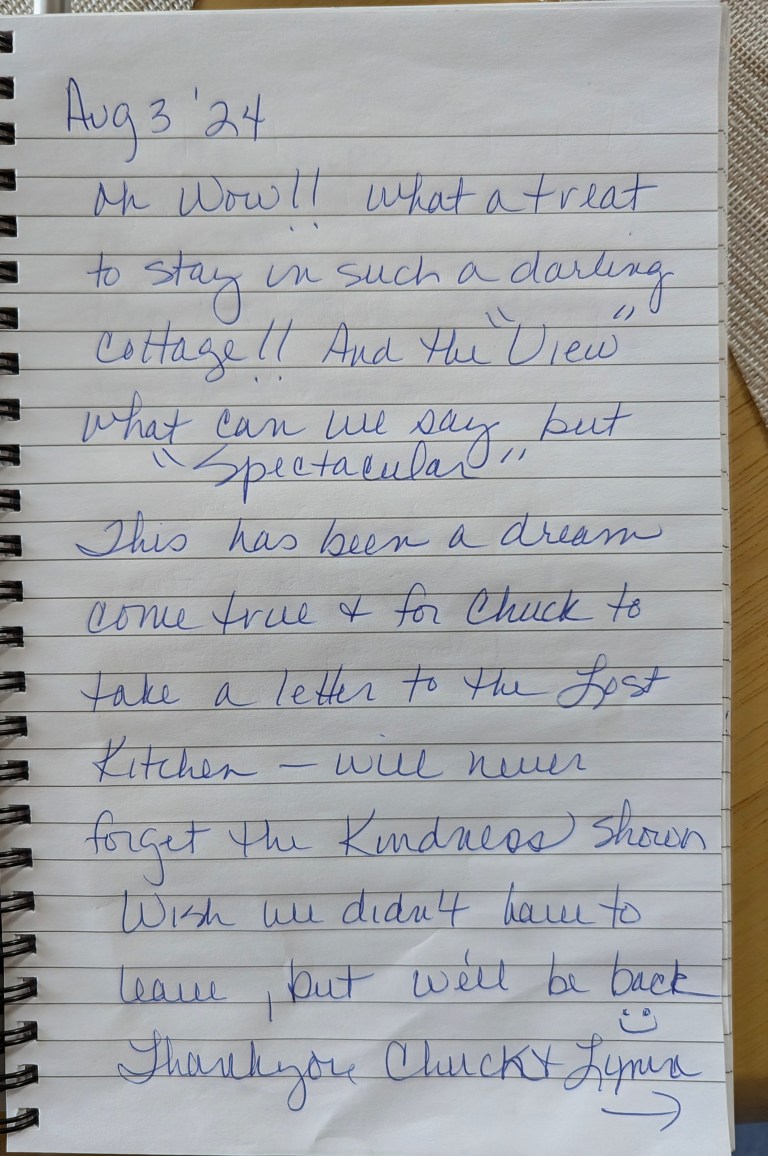 Aug 3 '24
Oh Wow!! What a treat
to stay in such a darling
cottage!! And the "View"
what can we say but
"Spectacular"
This has been a dream
come true & for Chuck to
take a letter to the Lost
Kitchen – will never
forget the Kindness shown
Wish we didn't have to
leave, but we'll be back
Thankyou Chuck & Lynn